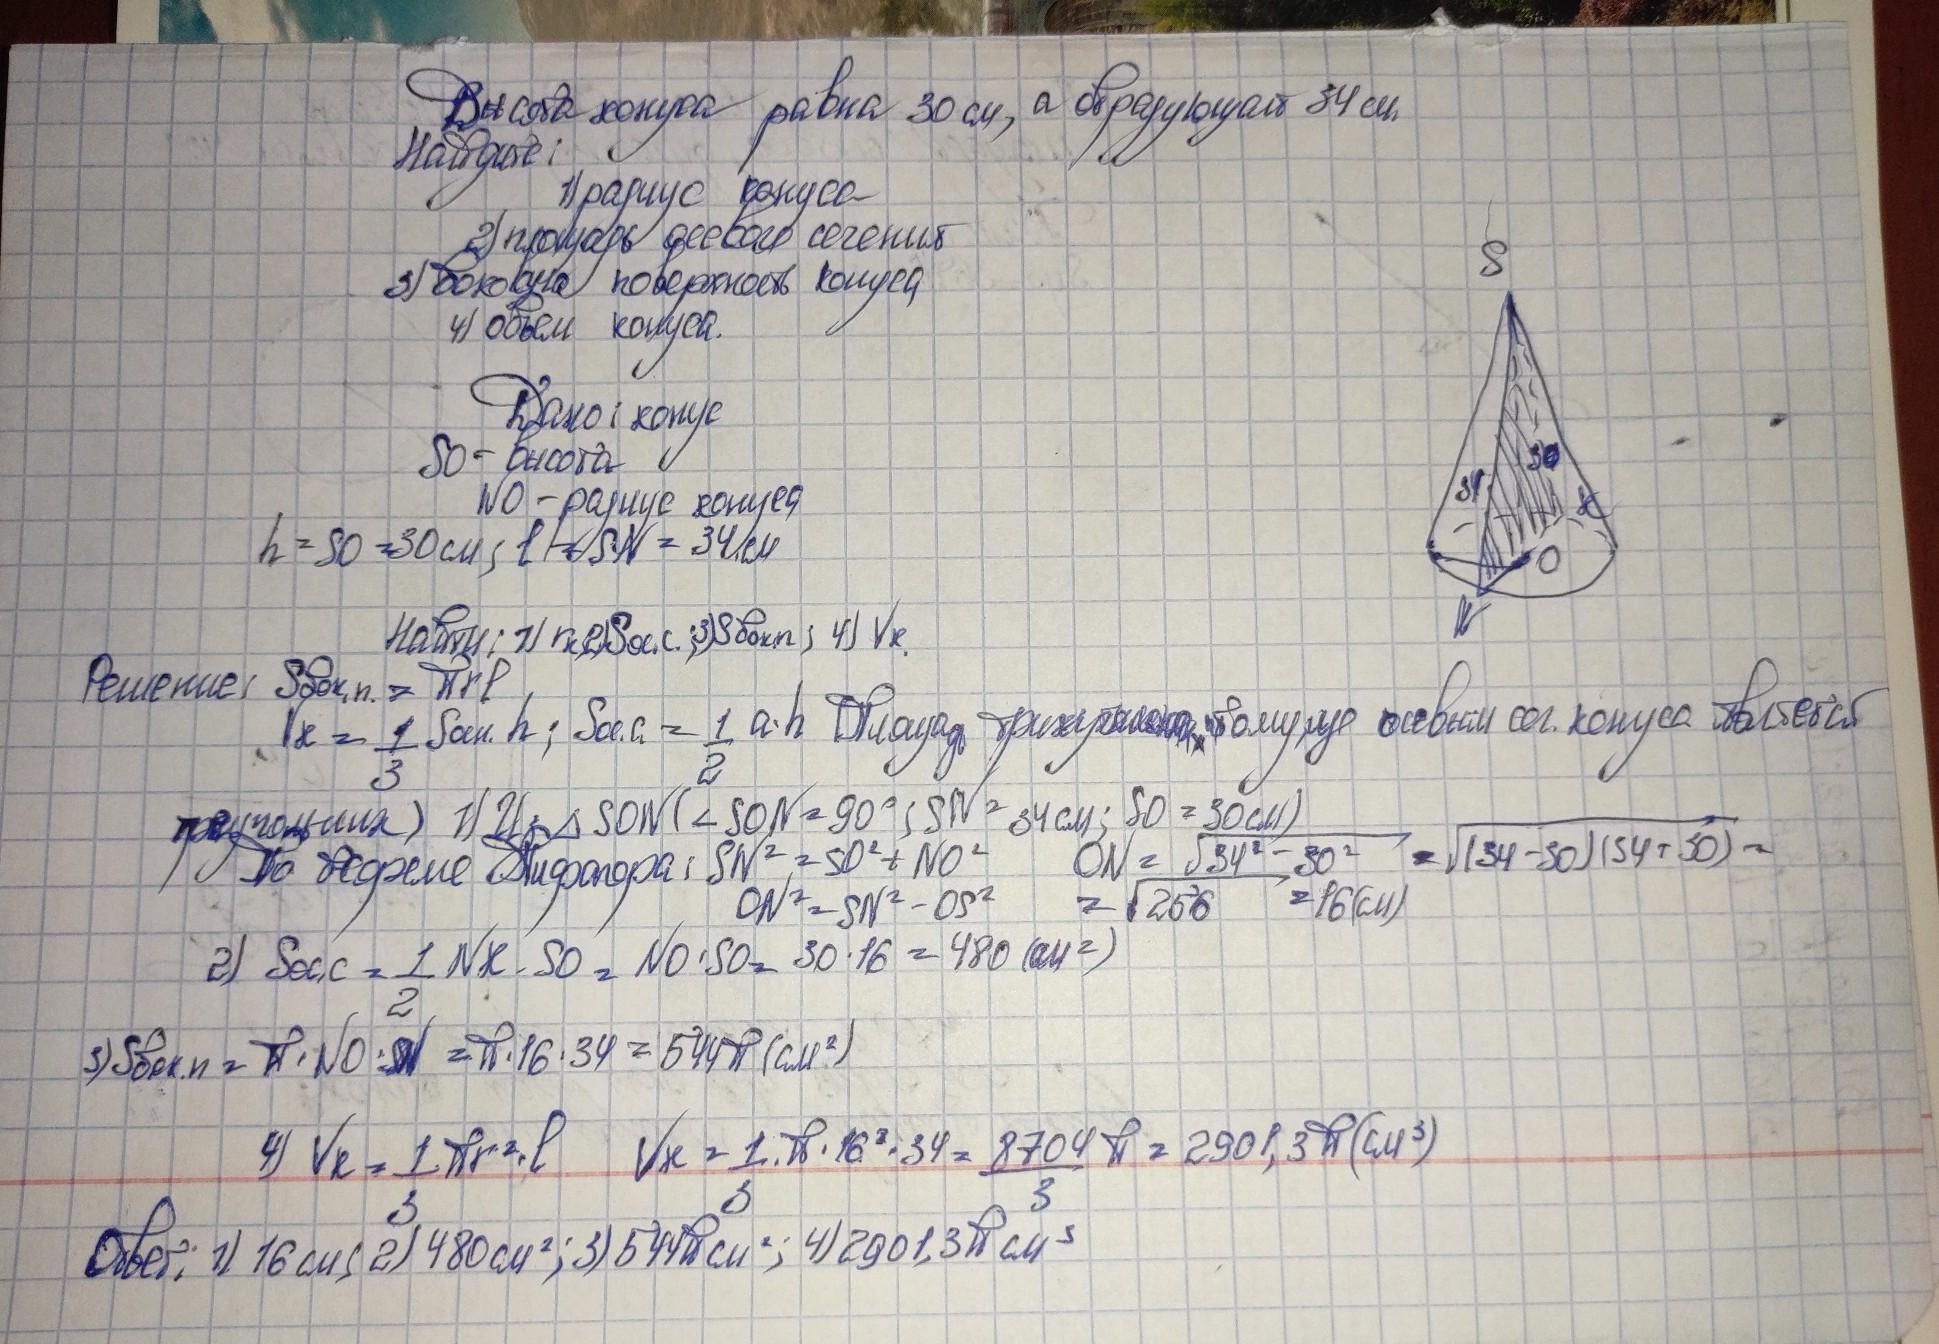 Высота конуса равна 30 см, а образующая 34 см.
Найдите:
1) радиус конуса
2) площадь осевого сечения
3) боковую поверхность конуса
4) объем конуса.
S
34
30
K
O
N
Дано: конус
SO - высота
NO - радиус конуса
h = SO = 30 см; l = SN = 34 см
Найти: 1) rк; 2) Sос.с.; 3) Sбок.п; 4) Vк.
Решение: Sбок.п. = πrl
Vк = 1/3 Sосн. h; Sос.с = 1/2 a·h Площадь треугольника, потому, что осевым сеч. конуса является
треугольник) 1) Из △ SON (∠SON = 90°; SN = 34 см; SO = 30 см)
По теореме Пифагора: SN² = SO² + NO² ON = √34² - 30² = √(34-30)(34+30) =
ON² = SN² - OS² = √256 = 16 (см)
2) Sос.с = 1/2 NK · SO = NO · SO = 30 · 16 = 480 (см²)
3) Sбок.п = π · NO · SN = π · 16 · 34 = 544π (см²)
4) Vк = 1/3 πr² · l Vк = 1/3 · π · 16² · 34 = 8704/3 π = 2901,3π (см³)
Ответ: 1) 16 см; 2) 480 см²; 3) 544π см²; 4) 2901,3π см³